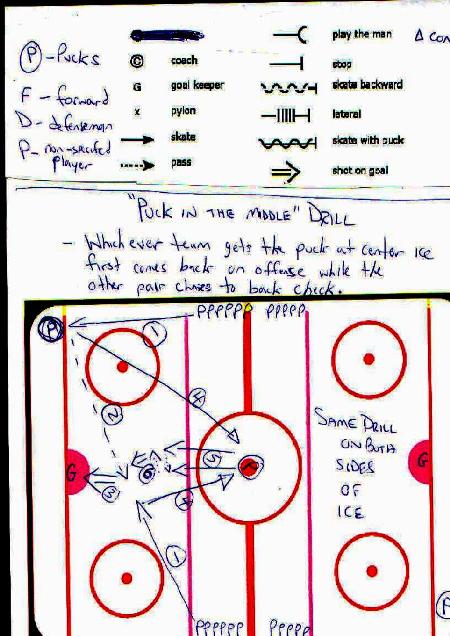 Ⓟ - PUCKS
F - forward
D - defenseman
P - non-specified player
© coach
G goal keeper
x pylon
skate
pass
play the man
stop
skate backward
lateral
skate with puck
shot on goal
Δ CON
"PUCK IN THE MIDDLE" DRILL
- Whichever team gets the puck at center ice
first comes back on offense while the
other pair chases to back check.
PPPPP PPPPP
P
1
4
2
G
3
6
5
4
1
SAME DRILL
ON BOTH
SIDES
OF
ICE
G
P
PPPPP PPPPP